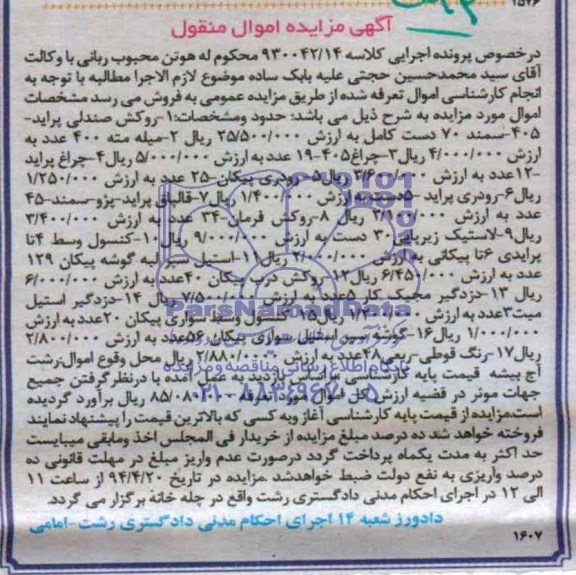 ۱۵۷۶
آگهی مزایده اموال منقول
درخصوص پرونده اجرایی کلاسه ۹۳۰۰۴۲/۱۴ محکوم له هوتن محبوب ربانی با وکالت
آقای سید محمدحسین حجتی علیه بابک ساده موضوع لازم الاجرا مطالبه با توجه به
انجام کارشناسی اموال تعرفه شده از طریق مزایده عمومی به فروش می رسد مشخصات
اموال مورد مزایده به شرح ذیل می باشد: حدود ومشخصات:۱-روکش صندلی پراید-
۴۰۵-سمند ۷۰ دست کامل به ارزش ۲۵/۵۰۰/۰۰۰ ریال ۲-میله مته ۴۰۰ عدد به
ارزش ۴/۰۰۰/۰۰۰ ریال۳-چراغ۴۰۵-۱۹ عدد به ارزش ۵/۰۰۰/۰۰۰ ریال۴-چراغ پراید
-۱۲عدد به ارزش ۳/۶۰۰/۰۰۰ ریال۵-رودری پیکان-۲۵ عدد به ارزش ۱/۲۵۰/۰۰۰
ریال۶-رودری پراید دست به ارزش ۱/۴۰۰/۰۰۰ ریال۷-قالپاق پراید-پژو-سمند-۴۵
عدد به ارزش ریال ۸-روکش فرمان-۳۴ عدد به ارزش ۳/۴۰۰/۰۰۰
ریال۹-لاستیک زیرپایی۳۰ دست به ارزش ۹/۰۰۰/۰۰۰ ریال۱۰-کنسول وسط ۴تا
پرایدی ۶تا پیکانی به ارزش ۲/۰۰۰/۰۰۰ ریال۱۱-استیل لبه گوشه پیکان ۱۲۹
عدد به ارزش ۶/۴۵۰/۰۰۰ ریال۱۲-روکش درب پیکان ۴۰عدد به ارزش ۶/۰۰۰/۰۰۰
ریال ۱۳-دزدگیر مجیک کار۵عدد به ارزش ۷/۵۰۰/۰۰۰ ریال ۱۴-دزدگیر استیل
میت۳عدد به ارزش ریال۱۵-کنسول وسط سواری پیکان ۲۰عدد به ارزش
۱/۰۰۰/۰۰۰ ریال۱۶-گوشه سپر استیل سواری پیکان ۵۶عدد به ارزش ۲/۸۰۰/۰۰۰
ریال۱۷-رنگ قوطی-ربعی۴۸عدد به ارزش ۲/۸۸۰/۰۰۰ ریال محل وقوع اموال:رشت
آج بیشه قیمت پایه کارشناسی براساس بازدید به عمل آمده با درنظرگرفتن جمیع
جهات موثر در قضیه ارزش کل اموال مورد تعرفه ریال برآورد گردیده
است.مزایده از قیمت پایه کارشناسی آغاز وبه کسی که بالاترین قیمت را پیشنهاد نمایند
فروخته خواهد شد ده درصد مبلغ مزایده از خریدار فی المجلس اخذ ومابقی میبایست
حد اکثر به مدت یکماه پرداخت گردد درصورت عدم واریز مبلغ در مهلت قانونی ده
درصد واریزی به نفع دولت ضبط خواهدشد .مزایده در تاریخ ۹۴/۴/۲۰ از ساعت ۱۱
الی ۱۲ در اجرای احکام مدنی دادگستری رشت واقع در چله خانه برگزار می گردد.
دادورز شعبه ۱۴ اجرای احکام مدنی دادگستری رشت-امامی
۱۶۰۷
ParsNamadData
پایگاه اطلاع رسانی مناقصه و مزایده
۰۲۱-۸۸۳۴۹۶۷۰-۵